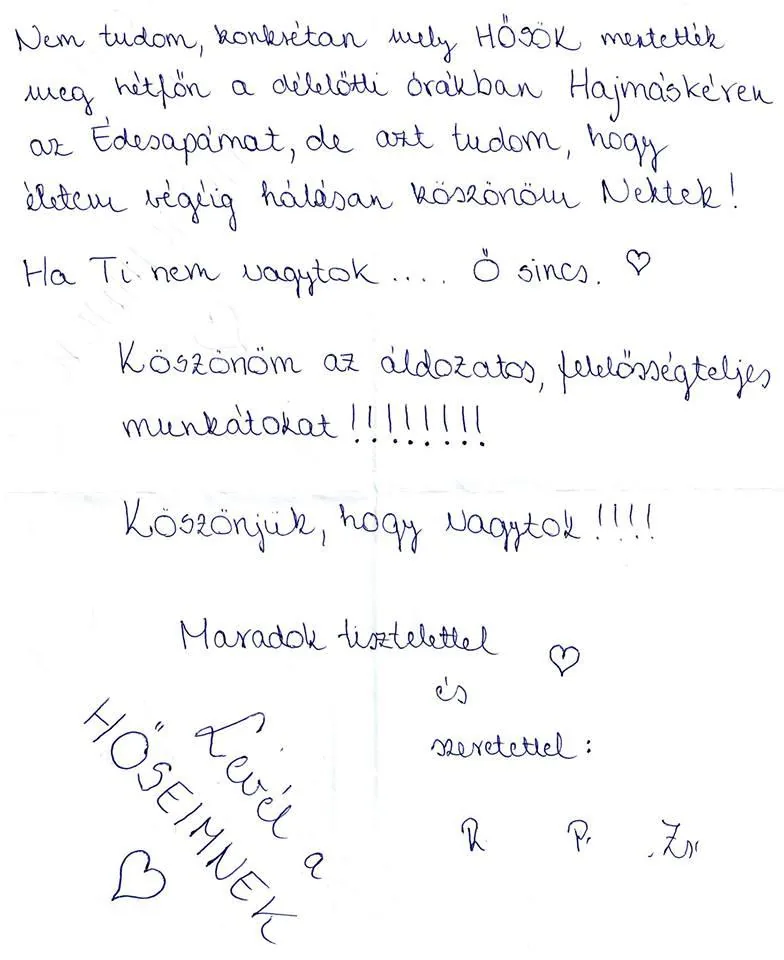 Nem tudom, konkrétan mely HŐSÖK mentették
meg hétfőn a délelőtti órákban Hajmáskéren
az Édesapámat, de azt tudom, hogy
életem végéig hálásan köszönöm Nektek!
Ha Ti nem vagytok .... Ő sincs. ♡
Köszönöm az áldozatos, felelősségteljes
munkátokat !!!!!!!!
Köszönjük, hogy vagytok !!!!
Maradok tisztelettel ♡
és
szeretettel:
R P. Zs.
Levél a
HŐSEIMNEK
♡